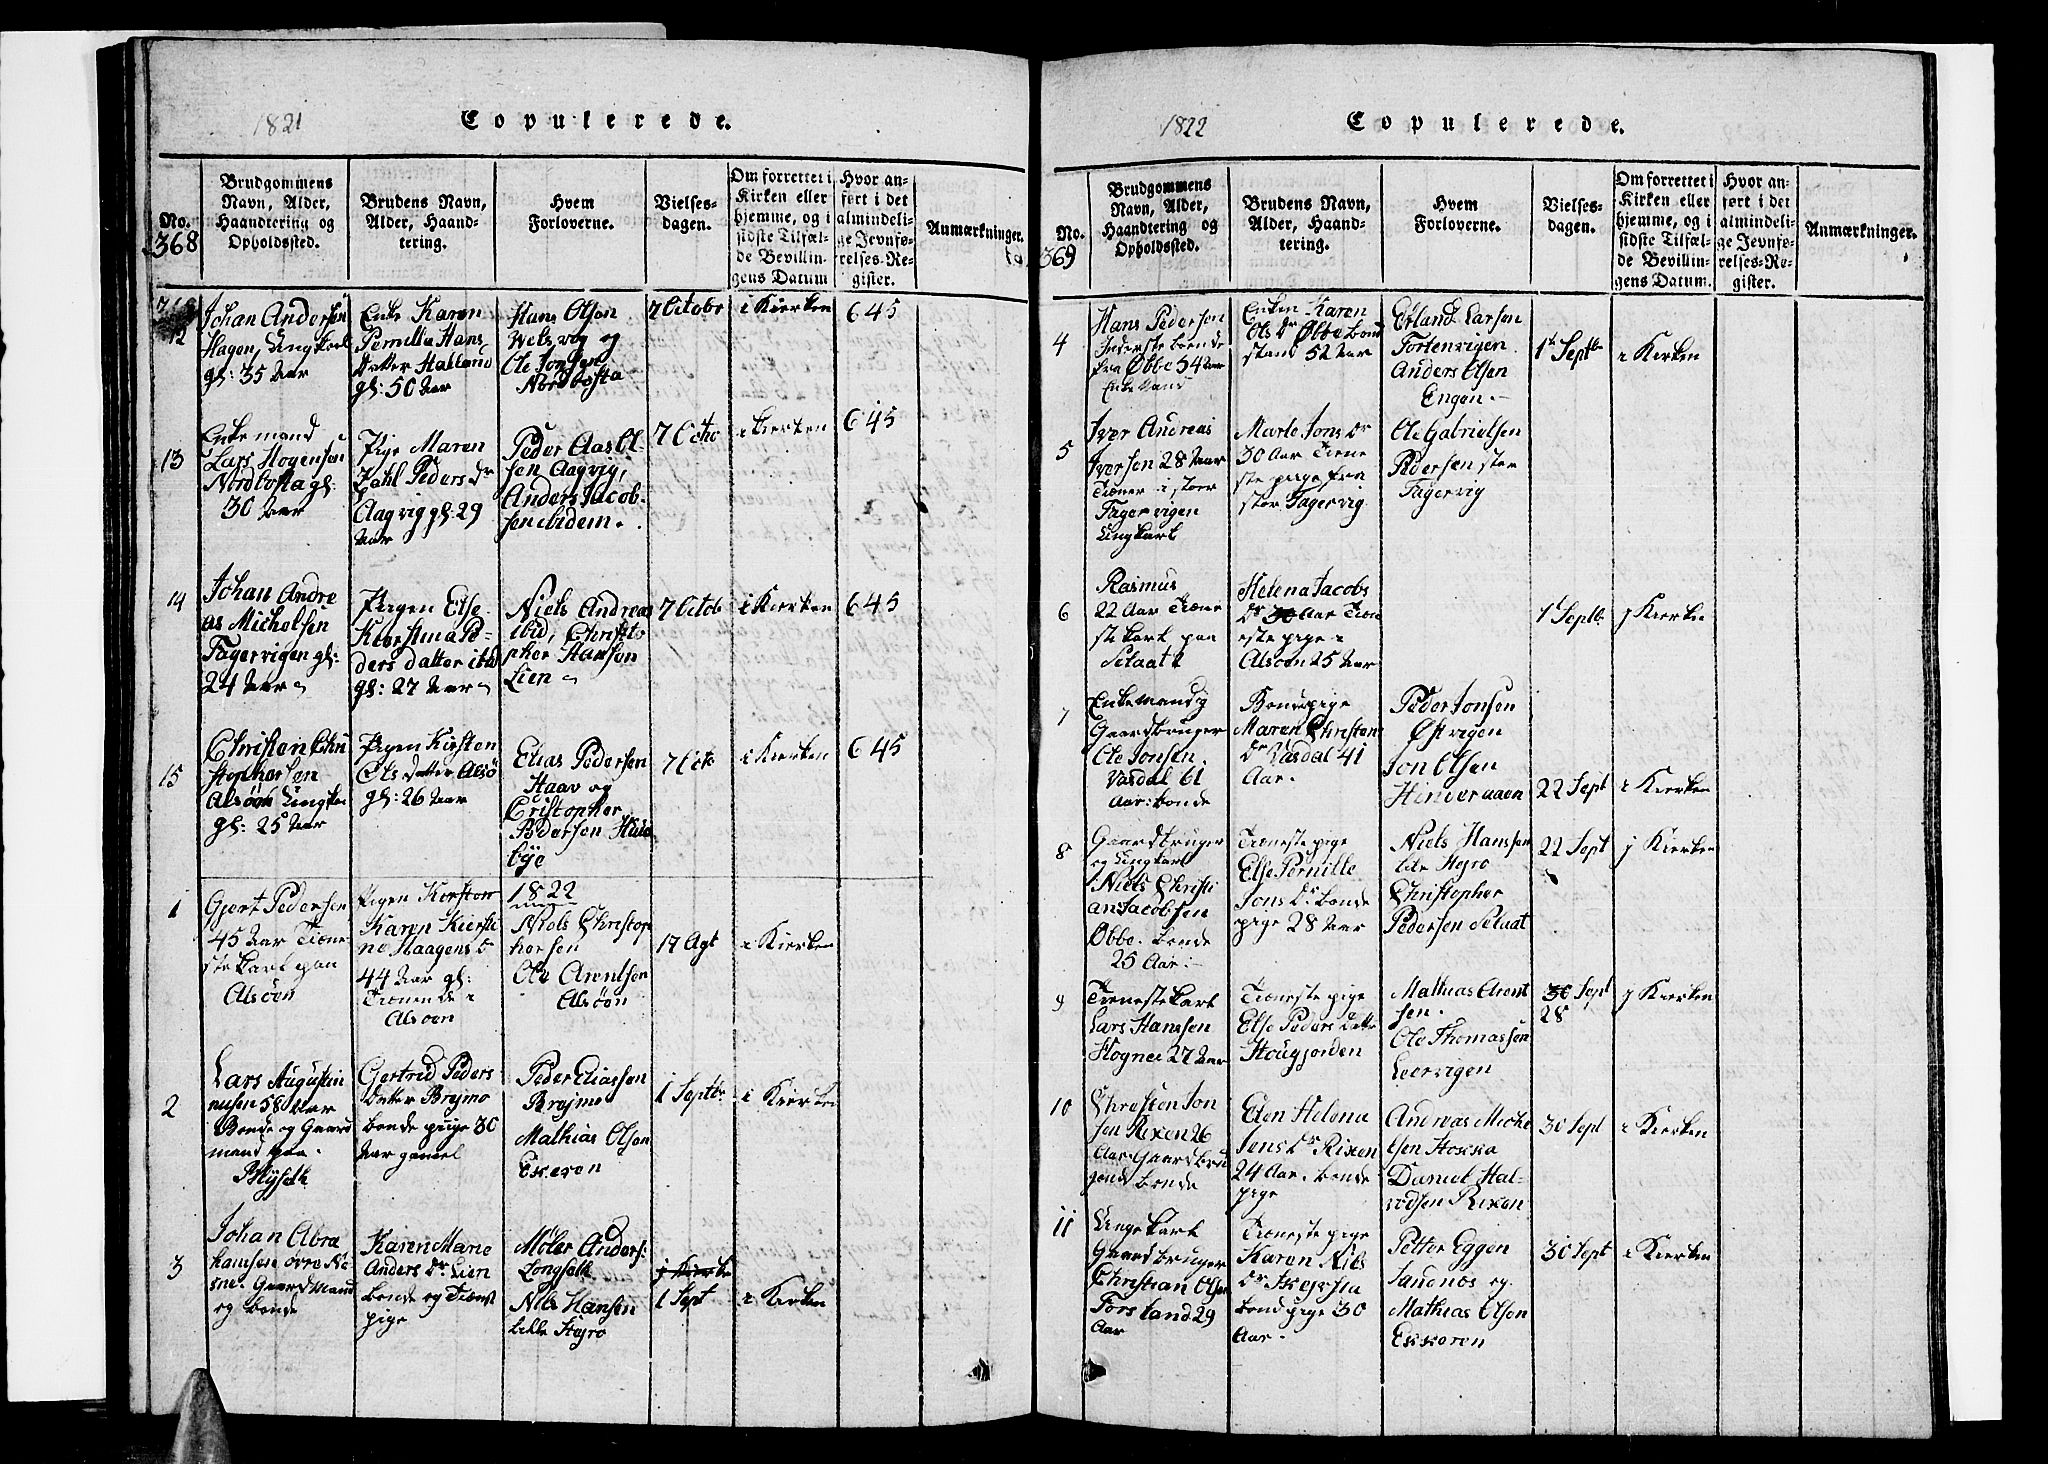 1821
Copulerede.
No.
368
Brudgommens
Navn, Alder,
Haandtering og
Opholdssted.
Brudens Navn,
Alder, Haand-
tering.
Hvem
Forloverne.
Vielses-
dagen.
Om forrettet i
Kirken eller
hjemme, og i
sidste Tilfæl-
de Bevillin-
gens Datum
Hvor an-
ført i det
almindeli-
ge Jevnfø-
relses-Re-
gister.
Anmærkninger.
12
Johan Anders
Hagen, Ungkarl
gl: 35 Aar
Enke Karen
Pernilla Hans
datter Halland
gl: 50 Aar
Hans Olsen
Welsvig og
Ole Jonsen
Nordbosta
7 Octobr
i Kierken
645
13
Enkemand
Lars Mogensen
Nordbosta gl:
30 Aar
Pige Maren
Dahl Peders Dr
Aagvig gl: 29
Aar
Peder Aas Ol
sen Aagvig,
Anders Jacob-
sen ibidem.
7 Octo
i Kierken
645
14
Johan Andre
as Michelsen
Fagervigen gl:
24 Aar
Pigen Else
Kierstina Pe-
ders datter ibid
gl: 27 Aar
Niels Andreas
ibid, Christo
pher Hansen
Lien
7 Octob
i Kierken
645
15
Christen Chri
stophersen
Alsøen Ungkar
gl: 25 Aar
Pigen Kirsten
Ols datter Alsø
gl: 26 Aar
Elias Pedersen
Haav og
Cristopher
Pedersen Huus
bye
7 Octo
i Kierken
645
1822
1
Gjert Pedersen
45 Aar Tiene
ste karl paa
Alsøen
Pigen Kersten
Karen Kiersti
ne Haagens Dr
44 Aar gl:
Tienende i
Alsøen
Niels Christop
hersen
Ole Arentsen
Alsøen
17 Agt
i Kierken
2
Lars Augustin
nusen 58 Aar
Bonde og Gaard
mand paa
Mÿseth
Gertrud Peders
datter Brejmo
bonde pige 30
Aar gamel
Peder Eliassen
Brejmo
Mathias Olsen
Exeren
1 Septbr
i Kierken
3
Johan Abra
hamsen øvre Næ
sne. Gaardmand
og bonde
Karen Marie
Anders Dr Lien
bonde og Tienst
pige
Møler Anders:
Longseth
Nils Hansen
lille Hejro
i Kierke
1 Sept
i Kierken
1822
Copulerede.
No.
369
Brudgommens
Navn, Alder,
Haandtering og
Opholdssted.
Brudens Navn,
Alder, Haand-
tering.
Hvem
Forloverne.
Vielses-
dagen.
Om forrettet i
Kirken eller
hjemme, og i
sidste Tilfæl-
de Bevillin-
gens Datum.
Hvor an-
ført i det
almindeli-
ge Jevnfø-
relses-Re-
gister.
Anmærkninger.
4
Hans Pedersen
Inderste bonde
fra Øbbe 54 Aar
Enke Mand
Enken Karen
Ols Dr Øbbe bond
stand 52 Aar
Erland Larsen
Tortenvigen
Anders Olsen
Engen.
1t Septbr
i Kierken
5
Iver Andreas
Iversen 28 Aar
Tiener i stoer
Fagervigen
Ungkarl
Marte Jons Dr
30 Aar Tiene
ste pige fra
stor Fagervig
Ole Gabrielsen
Pedersen stor
Fagervig
6
Rasmus
22 Aar Tiene
ste karl paa
Selaatt
Helena Jacobs
Dr 30 Aar Tien
este pige i
Alsøen 25 Aar
1t Septbr
j Kierken
7
Enkemand og
Gaardbruger
Ole Jonsen.
Vasdal 61
Aar: bonde
Bondepige
Maren Christens
Dr Vasdal 41
Aar.
Peder Jonsen
Østvigen
Jon Olsen
Hinderaaen
22 Sept
i Kierken
8
Gaardbruger
og Ungkarl
Niels Christi
an Jacobsen
Øbbe. bonde
25 Aar:
Tieneste pige
Else Pernille
Jons Dr bonde
pige 28 Aar
Niels Hanssen
lile Hejro
Christopher
Pedersen Selaat
22 Sept
j Kierken
9
Tienestekarl
Lars Hanssen
Hognes 27 Aar
Tieneste pige
Else Peders Datte
Hougjorden
Mathias Arent
sen.
Ole Thomassen
Leervigen
30 Sept
28
j Kierken
10
Christen Jon
sen Rixen 26
Aar Gaardbru
gend bonde
Elen Helena
Jens Dr Rixen
24 Aar. bonde
pige
Andreas Miche
lsen Hoxxa
Daniel Hal-
vodsen Rixen
30 Sept
i Kierken
11
Ungekarl
Gaardbruger
Christian Olsen
Forsland 29
Aar
Tieneste pige
Karen Nils
Dr Skejsta
bond pige 30
Aar.
Petter Eggen
Sandnos og
Mathias Olsen
Exxeren
30 Sept
i Kierken